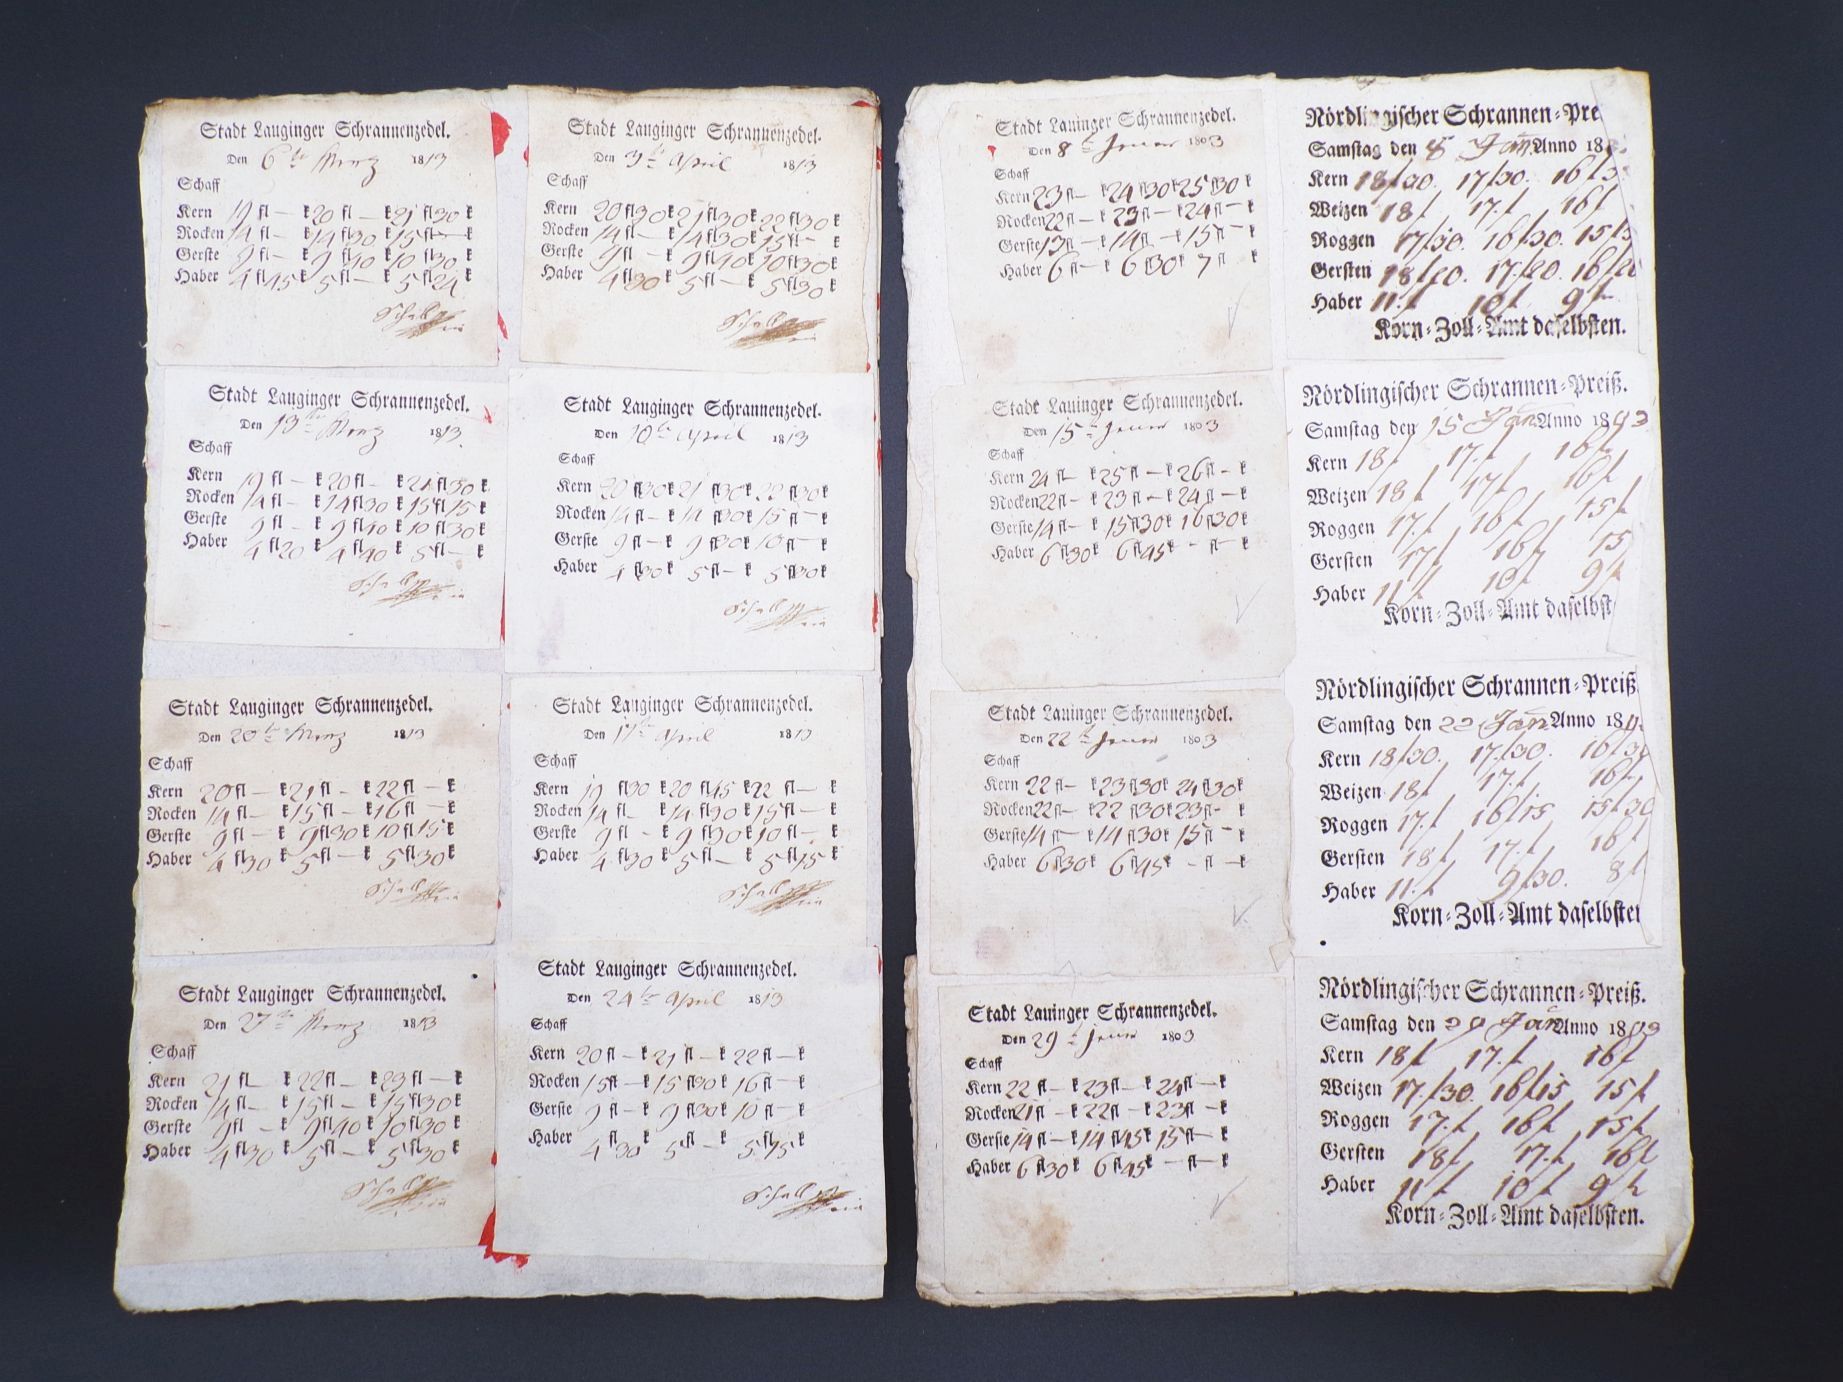 Stadt Lauginger Schrannenzedel.
Den 6te Merz 1813
Schaff
Kern 19 fl — k 20 fl — k 21 fl 30 k
Rocken 14 fl — k 14 fl 30 k 15 fl — k
Gerste 9 fl — k 9 fl 40 k 10 fl 30 k
Haber 4 fl 45 k 5 fl — k 5 fl 24 k
Stadt Lauginger Schrannenzedel.
Den 13te Merz 1813
Schaff
Kern 19 fl — k 20 fl — k 21 fl 30 k
Rocken 14 fl — k 14 fl 30 k 15 fl 15 k
Gerste 9 fl — k 9 fl 40 k 10 fl 30 k
Haber 4 fl 20 k 4 fl 40 k 5 fl — k
Stadt Lauginger Schrannenzedel.
Den 20te Merz 1813
Schaff
Kern 20 fl — k 21 fl — k 22 fl — k
Rocken 14 fl — k 15 fl — k 16 fl — k
Gerste 9 fl — k 9 fl 30 k 10 fl 15 k
Haber 4 fl 30 k 5 fl — k 5 fl 30 k
Stadt Lauginger Schrannenzedel.
Den 27te Merz 1813
Schaff
Kern 21 fl — k 22 fl — k 23 fl — k
Rocken 14 fl — k 15 fl — k 15 fl 30 k
Gerste 9 fl — k 9 fl 40 k 10 fl 30 k
Haber 4 fl 30 k 5 fl — k 5 fl 30 k
Stadt Lauginger Schrannenzedel.
Den 3te April 1813
Schaff
Kern 20 fl 30 k 21 fl 30 k 22 fl 30 k
Rocken 14 fl — k 14 fl 30 k 15 fl — k
Gerste 9 fl — k 9 fl 40 k 10 fl 30 k
Haber 4 fl 30 k 5 fl — k 5 fl 30 k
Stadt Lauginger Schrannenzedel.
Den 10te April 1813
Schaff
Kern 20 fl 30 k 21 fl 30 k 22 fl 30 k
Rocken 14 fl — k 14 fl 30 k 15 fl — k
Gerste 9 fl — k 9 fl 30 k 10 fl — k
Haber 4 fl 30 k 5 fl — k 5 fl 30 k
Stadt Lauginger Schrannenzedel.
Den 17te April 1813
Schaff
Kern 19 fl 30 k 20 fl 45 k 22 fl — k
Rocken 14 fl — k 14 fl 30 k 15 fl — k
Gerste 9 fl — k 9 fl 30 k 10 fl — k
Haber 4 fl 30 k 5 fl — k 5 fl 15 k
Stadt Lauginger Schrannenzedel.
Den 24te April 1813
Schaff
Kern 20 fl — k 21 fl — k 22 fl — k
Rocken 15 fl — k 15 fl 30 k 16 fl — k
Gerste 9 fl — k 9 fl 30 k 10 fl — k
Haber 4 fl 30 k 5 fl — k 5 fl 15 k
Stadt Lauinger Schrannenzedel.
Den 8te Jener 1803
Schaff
Kern 23 fl — k 24 fl 30 k 25 fl 30 k
Rocken 22 fl — k 23 fl — k 24 fl — k
Gerste 13 fl — k 14 fl — k 15 fl — k
Haber 6 fl — k 6 fl 30 k 7 fl k
Stadt Lauinger Schrannenzedel.
Den 15te Jener 1803
Schaff
Kern 24 fl — k 25 fl — k 26 fl — k
Rocken 22 fl — k 23 fl — k 24 fl — k
Gerste 14 fl — k 15 fl 30 k 16 fl 30 k
Haber 6 fl 30 k 6 fl 45 k — fl — k
Stadt Lauinger Schrannenzedel.
Den 22te Jener 1803
Schaff
Kern 22 fl — k 23 fl 30 k 24 fl 30 k
Rocken 22 fl — k 22 fl 30 k 23 fl — k
Gerste 14 fl — k 14 fl 30 k 15 fl — k
Haber 6 fl 30 k 6 fl 45 k — fl — k
Stadt Lauinger Schrannenzedel.
Den 29te Jener 1803
Schaff
Kern 22 fl — k 23 fl — k 24 fl — k
Rocken 21 fl — k 22 fl — k 23 fl — k
Gerste 14 fl — k 14 fl 45 k 15 fl — k
Haber 6 fl 30 k 6 fl 45 k — fl — k
Nördlingischer Schrannen=Pre
Samstag den 8 Jan Anno 18
Kern 18 f 30. 17 f 30. 16 f 3
Weizen 18 f 17. f 16 f
Roggen 17 f 30. 16 f 30. 15 f 3
Gersten 18 f 20. 17. f 20. 16 f 20
Haber 11. f 10 f 9 f
Korn=Zoll=Amt daselbsten.
Nördlingischer Schrannen=Preiß.
Samstag den 15 Jan Anno 1803
Kern 18 f 17. f 16 f
Weizen 18 f 17 f 16 f
Roggen 17. f 16 f 15 f
Gersten 17 f 16 f 15
Haber 11 f 10 f 9 f
Korn=Zoll=Amt daselbst
Nördlingischer Schrannen=Preiß
Samstag den 22 Jan Anno 180
Kern 18 f 30. 17. f 30. 16 f 30
Weizen 18 f 17. f 16 f
Roggen 17. f 16 f 15 15 f 30
Gersten 18 f 17. f 16 f
Haber 11. f 9 f 30. 8 f
Korn=Zoll=Amt daselbsten
Nördlingischer Schrannen=Preiß.
Samstag den 29 Jan Anno 1803
Kern 18 f 17. f 16 f
Weizen 17. f 30. 16 f 15 15 f
Roggen 17. f 16 f 15 f
Gersten 18 f 17. f 16 f
Haber 11 f 10 f 9 f
Korn=Zoll=Amt daselbsten.